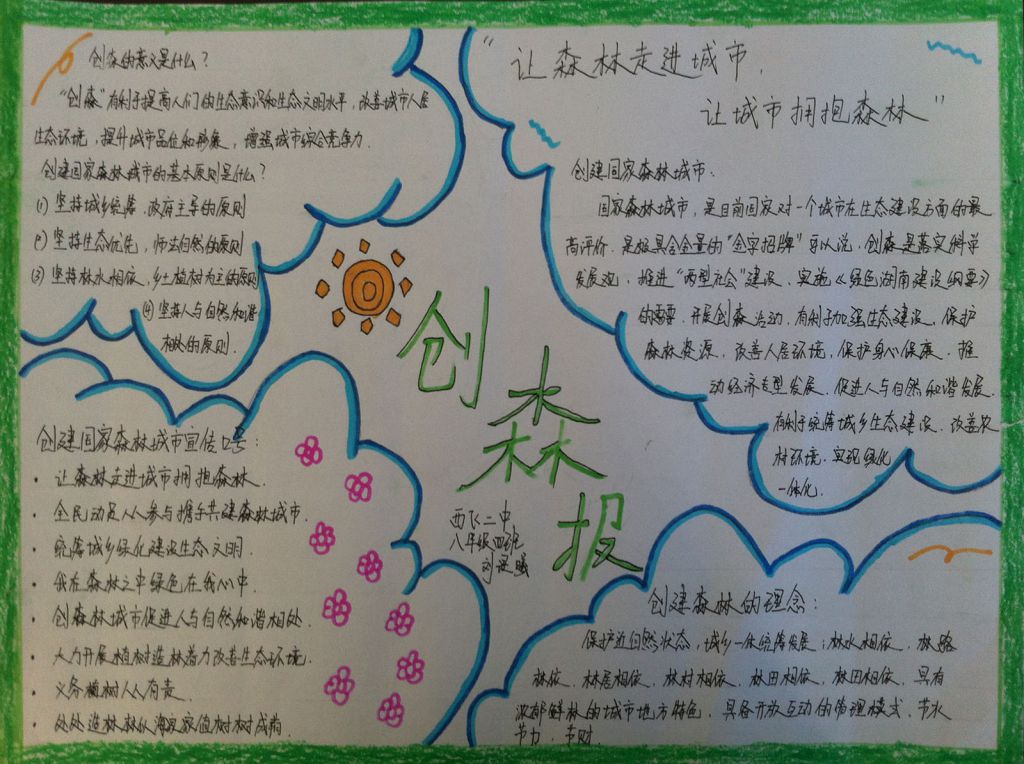 创森的意义是什么?
"创森"有利于提高人们的生态意识和生态文明水平,改善城市人居
生态环境,提升城市品位和形象,增强城市综合竞争力.
创建国家森林城市的基本原则是什么?
(1) 坚持城乡统筹,政府主导的原则
(2) 坚持生态优先,师法自然的原则
(3) 坚持林水相依,乡土植树为主的原则
(4) 坚持人与自然和谐
相处的原则.
"让森林走进城市,
让城市拥抱森林"
创建国家森林城市:
国家森林城市,是目前国家对一个城市在生态建设方面的最
高评价.是极具含金量的"金字招牌"可以说,创森是落实科学
发展观,推进"两型社会"建设,实施《绿色湖南建设纲要》
的需要.开展创森活动,有利于加强生态建设,保护
森林资源,改善人居环境,保护身心保康,推
动经济走型发展.促进人与自然和谐发展.
有利于统筹城乡生态建设,改善农
村环境.实现绿化
一体化.
创森报
西飞二中
八年级四班
创建国家森林城市宣传口号:
· 让森林走进城市拥抱森林.
· 全民动员人人参与携手共建森林城市.
· 统筹城乡绿化建设生态文明.
· 我在森林之中绿色在我心中
· 创森林城市促进人与自然和谐相处.
· 大力开展植树造林着力改善生态环境.
· 义务植树人人有责.
· 处处造林林似海家家值树树成荫
创建森林的理念:
保护近自然状态,城乡一体统筹发展;林水相依.林路
林依.林居相依.林村相依.林田相依.林田相依.具有
浓郁鲜林的城市地方特色.具备开放互动的管理模式.节水
节力.节财.